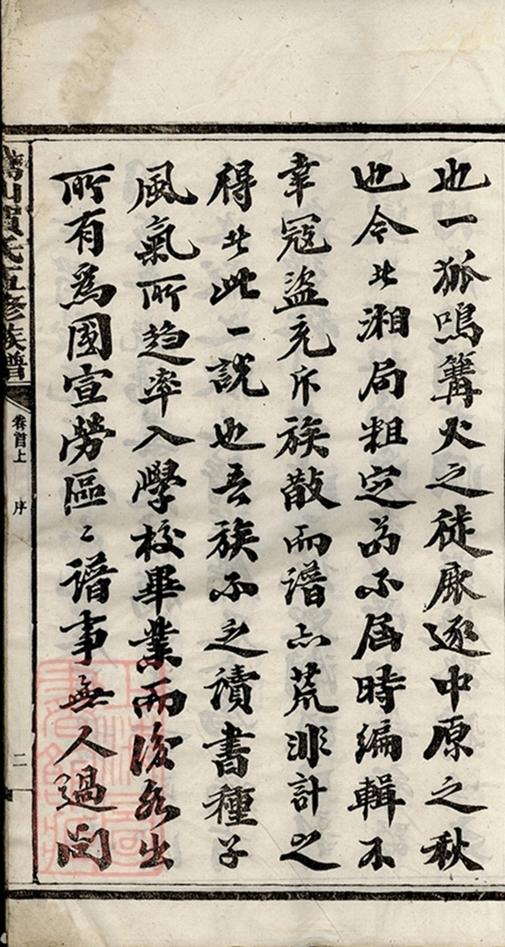 也一狐鳴篝火之徒鹿逐中原之秋
也今者湘局粗定苟不屆時編輯不
幸寇盜充斥族散而譜亦荒非計之
得者此一說也吾族不乏讀書種子
風氣所趨率入學校畢業而後各出
所有為國宣勞區〻譜事無人過問
山氏五修族譜
卷首上 序
二